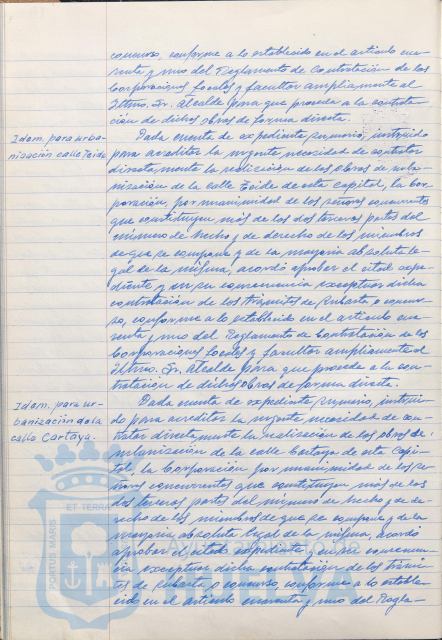 concurso, conforme a lo establecido en el artículo cua-
renta y uno del Reglamento de Contratación de las
Corporaciones Locales y facultar ampliamente al
Iltmo. Sr. Alcalde para que proceda a la contrata-
ción de dichas obras de forma directa.
Idem. para urba-
nización calle Teide
Dada cuenta de expediente sumario, instruido
para acreditar la urgente necesidad de contratar
directamente la realización de las obras de urba-
nización de la calle Teide de esta capital, la Cor-
poración, por unanimidad de los señores concurrentes
que constituyen más de las dos terceras partes del
número de hecho y de derecho de los miembros
de que se compone y de la mayoría absoluta le-
gal de la misma, acordó aprobar el citado expe-
diente y en su consecuencia exceptuar dicha
contratación de los trámites de subasta o concur-
so, conforme a lo establecido en el artículo cua-
renta y uno del Reglamento de Contratación de las
Corporaciones Locales y facultar ampliamente al
Iltmo. Sr. Alcalde para que proceda a la con-
tratación de dichas obras de forma directa.
Idem. para ur-
banización de la
calle Cartaya.
Dada cuenta de expediente sumario, instrui-
do para acreditar la urgente necesidad de con-
tratar directamente la realización de las obras de
urbanización de la calle Cartaya de esta Capi-
tal, la Corporación por unanimidad de los se-
ñores concurrentes que constituyen más de las
dos terceras partes del número de hecho y de de-
recho de los miembros de que se compone y de la
mayoría absoluta legal de la misma, acordó
aprobar el citado expediente y en su consecuen-
cia exceptuar dicha contratación de los trámi-
tes de subasta o concurso, conforme a lo estable-
cido en el artículo cuarenta y uno del Regla-
PORTUS MARIS
ET TERRAE
HUELVA